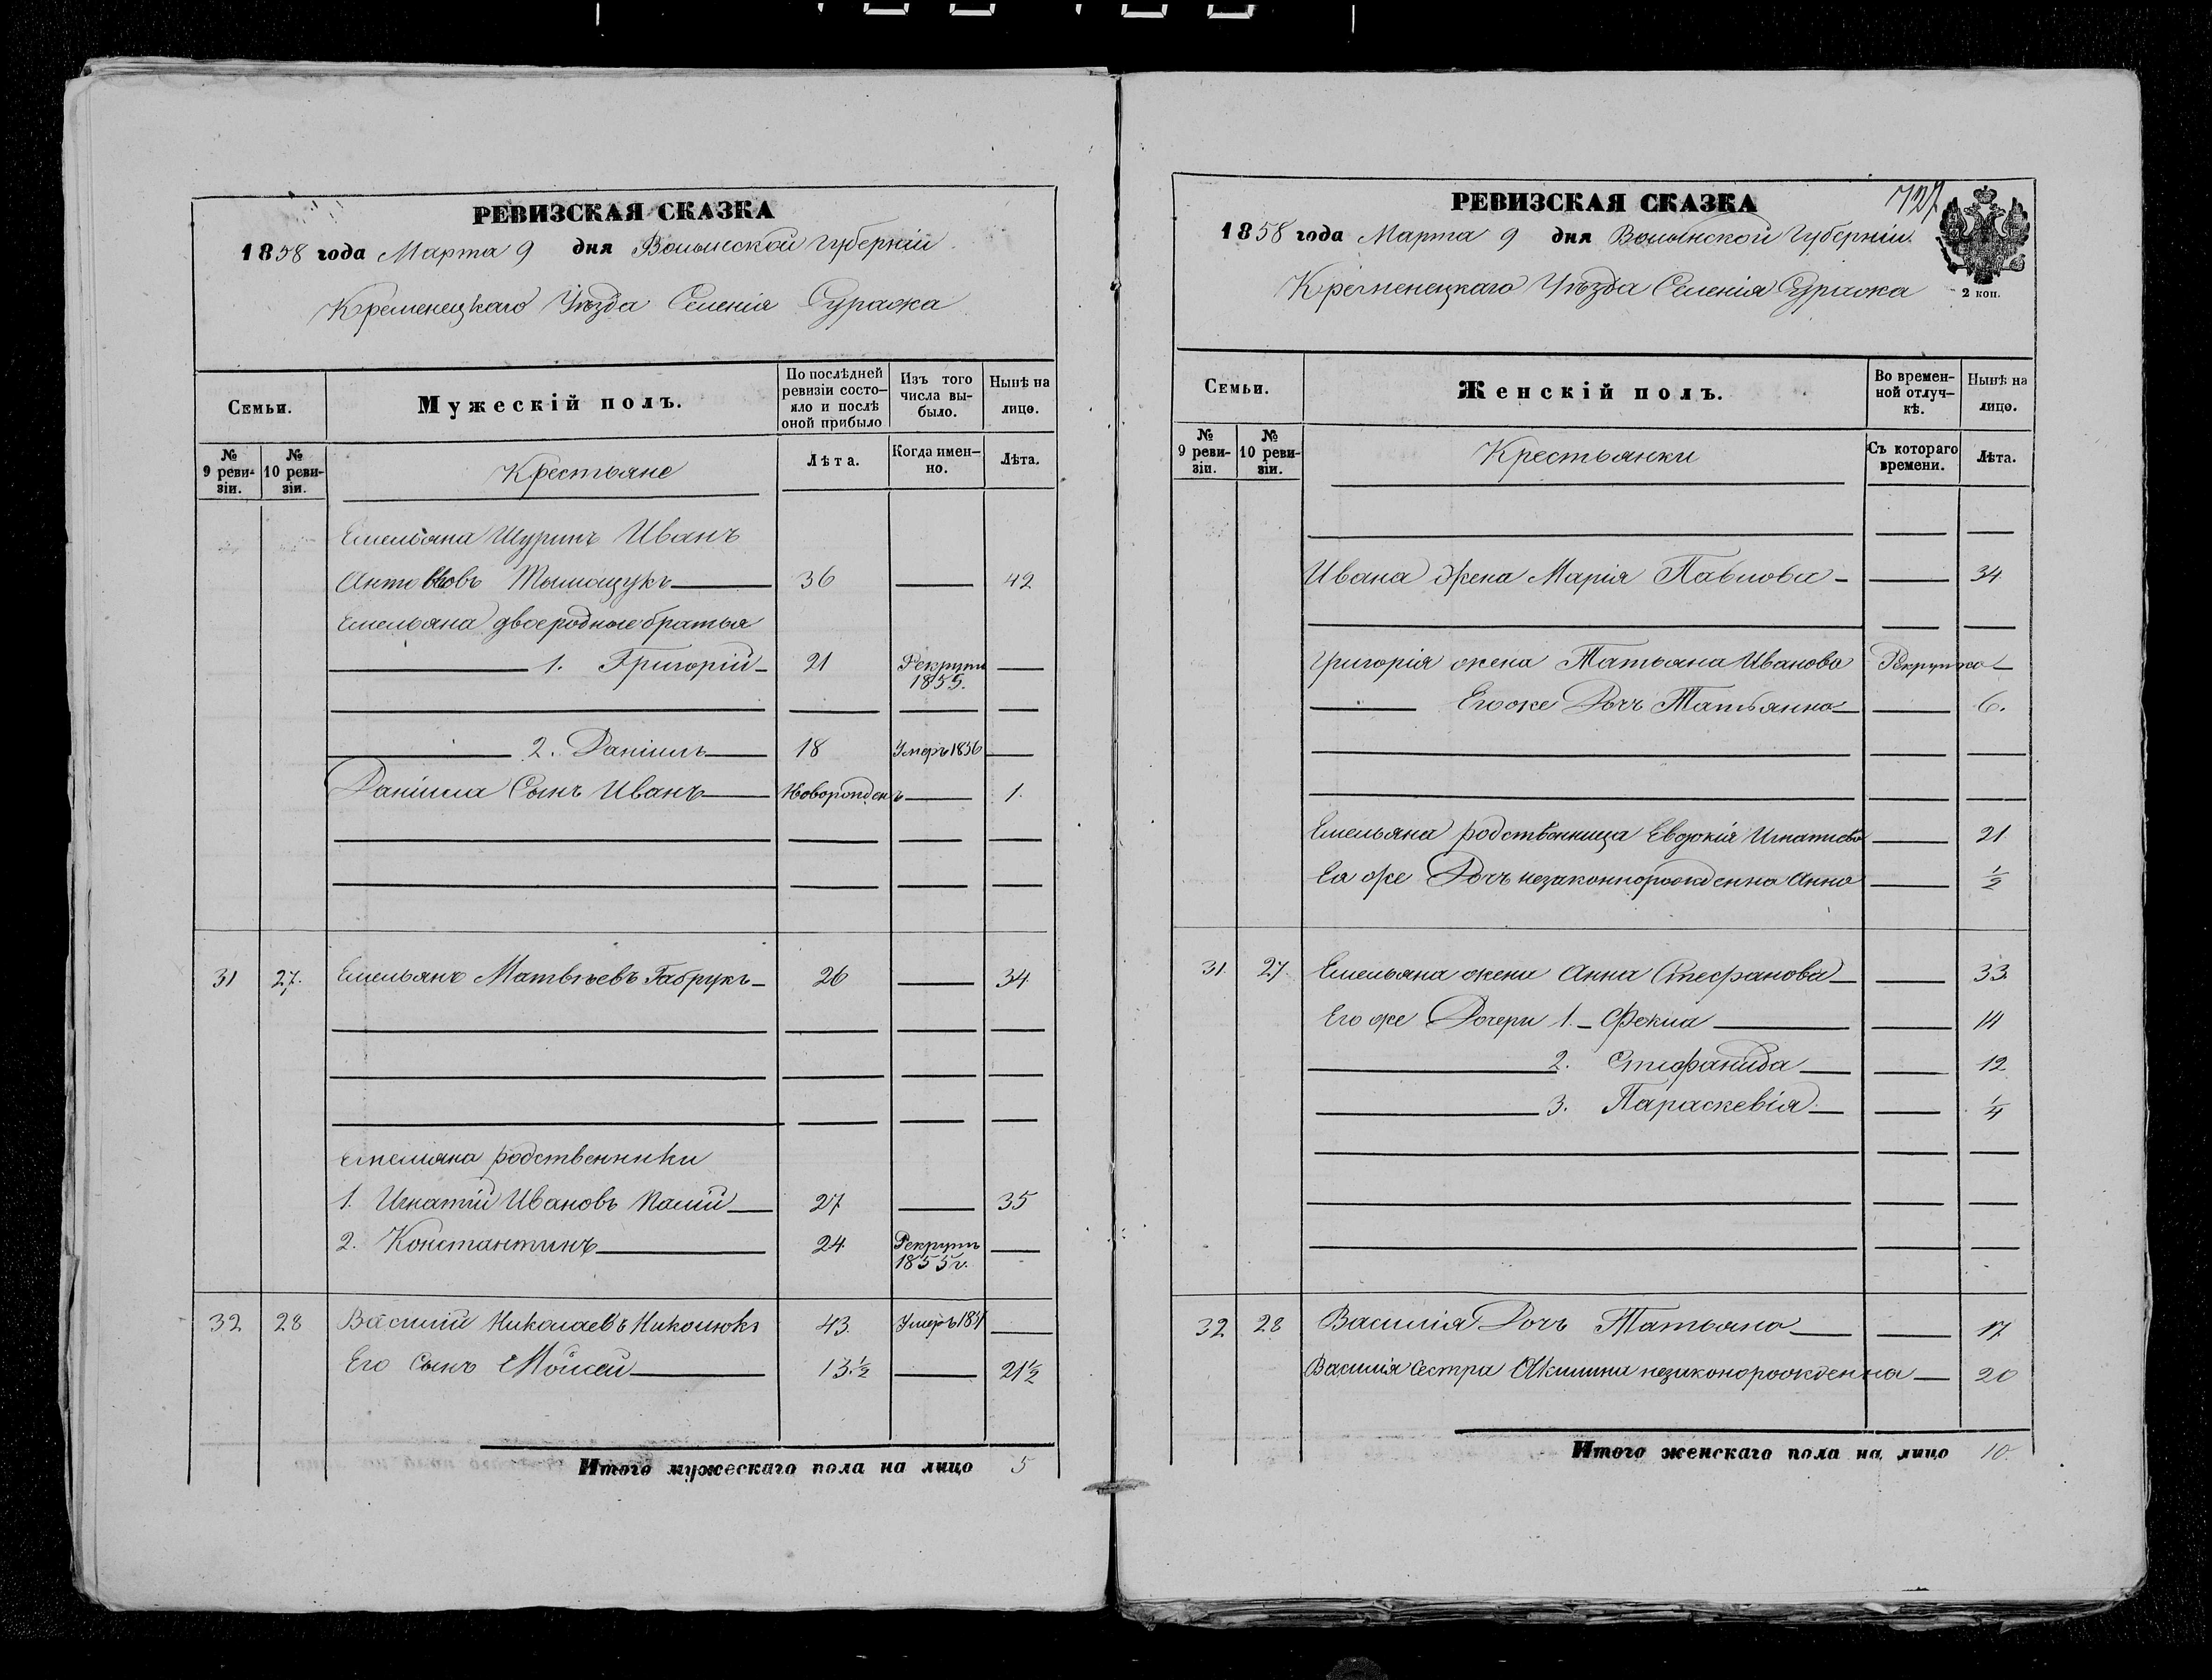 РЕВИЗСКАЯ СКАЗКА
1858 года Марта 9 дня Волынской Губерніи
Кременецкаго Уѣзда Селенія Суража
Семьи.
Мужескій полъ.
По послѣдней ревизіи состо-
яло и послѣ
оной прибыло
Изъ того
числа вы-
было.
Нынѣ на
лицо.
№
9 реви-
зіи.
№
10 реви-
зіи.
Крестьяне
Лѣта.
Когда имен-
но.
Лѣта.
Емельяна Шуринъ Иванъ
36 42
Емельяна двоеродные братья
1. Григорій 21 Рекрутъ 1855.
2. Даніилъ 18 Умеръ 1856
Даніила Сынъ Иванъ Новорожденъ 1.
31 27. Емельянъ Матвѣевъ Габрукъ 26 34
Емельяна родственники
1. Игнатій Ивановъ Палій 27 35
2. Константинъ 24 Рекрутъ 1855 г.
32 28 Василій Николаевъ Николюкъ 43. Умеръ
Его Сынъ Мойсей 13.½ 21½
Итого мужескаго пола на лицо 5
РЕВИЗСКАЯ СКАЗКА
727
1858 года Марта 9 дня Волынской Губерніи.
Кременецкаго Уѣзда Селенія Суража
2 коп.
Семьи.
Женскій полъ.
Во времен-
ной отлуч-
кѣ.
Нынѣ на
лицо.
№
9 реви-
зіи.
№
10 реви-
зіи.
Крестьянки
Съ котораго
времени.
Лѣта.
Ивана Жена Марія Павлова 34
Григорія жена Татьяна Иванова Рекрутка
Его же Дочъ Татьянна 6.
Емельяна родственница Евдокія Игнатіева 21
Ея же Дочъ незаконнорожденна Анна ½
31. 27 Емельяна жена Анна Стефанова 33.
Его же Дочери 1. Фекла 14
2. Стефанида 12
3. Параскевія ¼
32 28 Василія Дочъ Татьяна 17
Василія Сестра Акилина незаконорожденна 20
Итого женскаго пола на лицо 10.